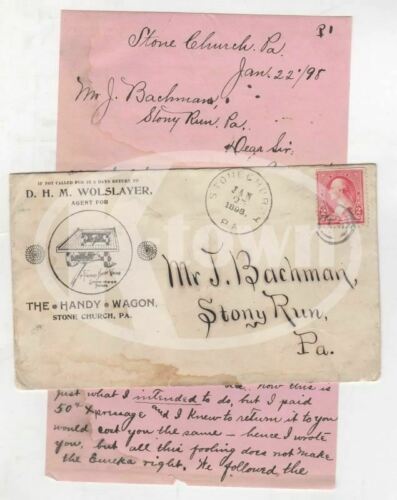 Stone Church, Pa. P1
Jan. 22 / 98
Mr J. Bachman,
Stony Run, Pa.
Dear Sir.
IF NOT CALLED FOR IN 5 DAYS RETURN TO
D. H. M. WOLSLAYER,
AGENT FOR
THE HANDY WAGON,
STONE CHURCH, PA.
STONECHURCH
JAN
1898.
PA.
Mr J. Bachman,
Stony Run,
Pa.
town
now this is
just what I intended to do, but I paid
50¢ Xpressage and I knew to return it to you
would cost you the same — hence I wrote
you, but all this fooling does not make
the Eureka right. We followed the